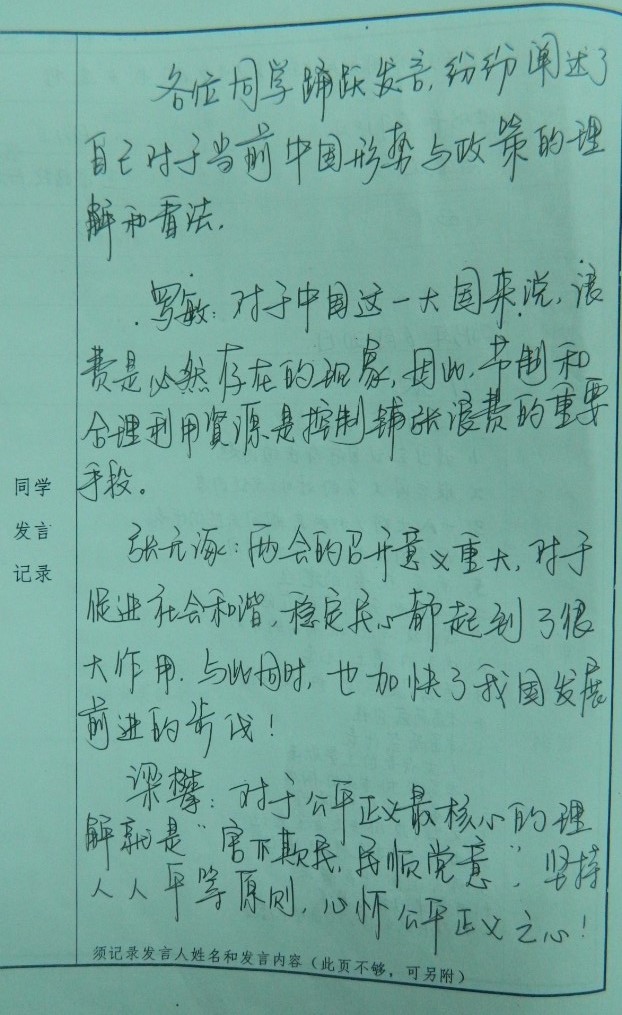 各位同学踊跃发言,纷纷阐述了
自己对于当前中国形势与政策的理
解和看法.
罗敏:对于中国这一大国来说,浪
费是必然存在的现象,因此,节制和
合理利用资源是控制铺张浪费的重要
手段。
张元涿:两会的召开意义重大,对于
促进社会和谐,稳定民心都起到了很
大作用.与此同时,也加快了我国发展
前进的步伐!
梁攀:对于公平正义最核心的理
解就是“官不欺民,民顺党意”,坚持
人人平等原则,心怀公平正义之心!
同学
发言
记录
须记录发言人姓名和发言内容(此页不够,可另附)